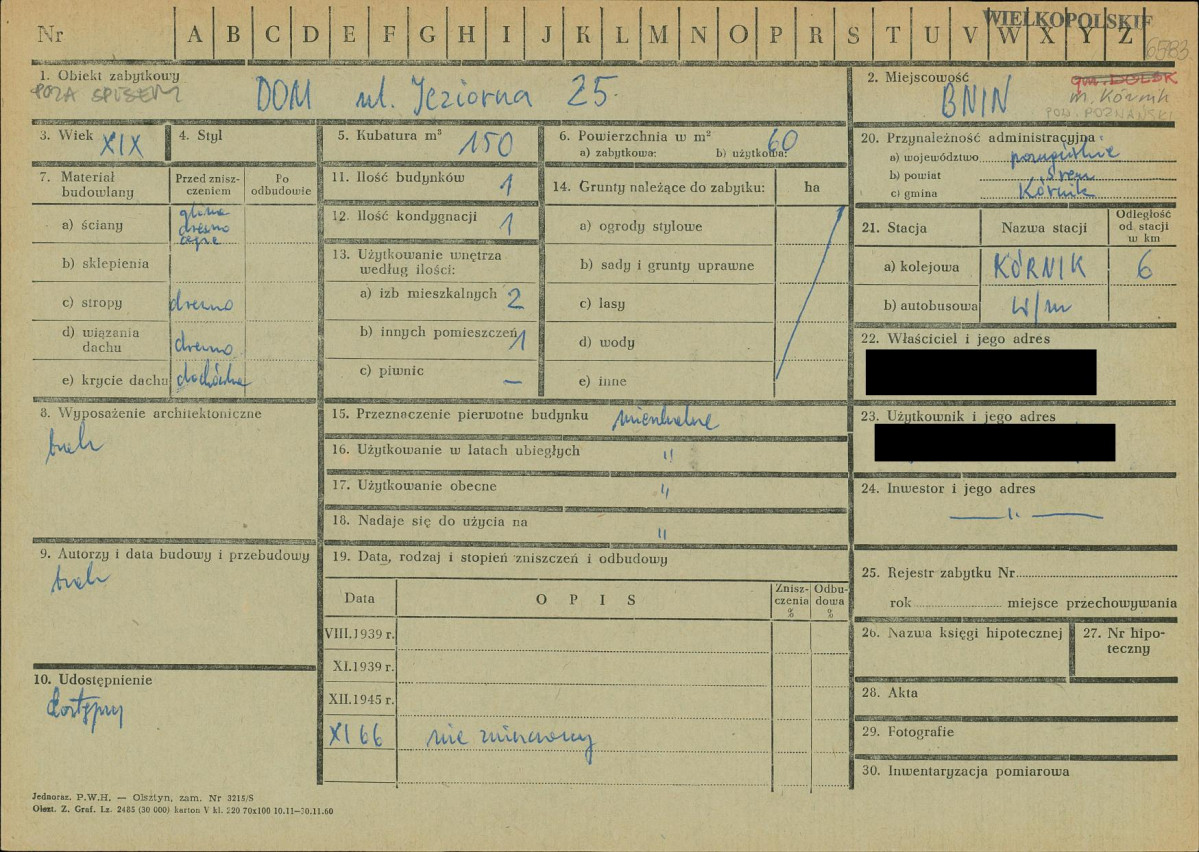 Nr A B C D E F G H I J K L M N O P R S T U V W X Y Z
WIELKOPOLSKIE
6583
1. Obiekt zabytkowy
POZA SPISEM
DOM ul. Jeziorna 25.
2. Miejscowość
BNIN
gm. DOLSK
m. Kórnik
POW. POZNAŃSKI
3. Wiek XIX
4. Styl
5. Kubatura m³ 150
6. Powierzchnia w m² 60
a) zabytkowa: b) użytkowa:
7. Materiał budowlany
Przed zniszczeniem
Po odbudowie
a) ściany
glina
drewno
cegła
b) sklepienia
c) stropy drewno
d) wiązania dachu drewno
e) krycie dachu dachówka
8. Wyposażenie architektoniczne
brak
9. Autorzy i data budowy i przebudowy
brak
10. Udostępnienie
dostępny
11. Ilość budynków 1
12. Ilość kondygnacji 1
13. Użytkowanie wnętrza według ilości:
a) izb mieszkalnych 2
b) innych pomieszczeń 1
c) piwnic —
14. Grunty należące do zabytku: ha
a) ogrody stylowe
b) sady i grunty uprawne
c) lasy
d) wody
e) inne
15. Przeznaczenie pierwotne budynku mieszkalne
16. Użytkowanie w latach ubiegłych "
17. Użytkowanie obecne "
18. Nadaje się do użycia na "
19. Data, rodzaj i stopień zniszczeń i odbudowy
Data
OPIS
Zniszczenia %
Odbudowa %
VIII.1939 r.
XI.1939 r.
XII.1945 r.
XI 66 nie zniszczony
20. Przynależność administracyjna:
a) województwo poznańskie
b) powiat Śrem
c) gmina Kórnik
21. Stacja
Nazwa stacji
Odległość od stacji w km
a) kolejowa KÓRNIK 6
b) autobusowa w/m
22. Właściciel i jego adres
23. Użytkownik i jego adres
24. Inwestor i jego adres
— " —
25. Rejestr zabytku Nr
rok miejsce przechowywania
26. Nazwa księgi hipotecznej
27. Nr hipoteczny
28. Akta
29. Fotografie
30. Inwentaryzacja pomiarowa
Jednoraz. P.W.H. — Olsztyn, zam. Nr 3215/S
Olszt. Z. Graf. Lz. 2485 (30 000) karton V kl. 220 70x100 10.11—30.11.60